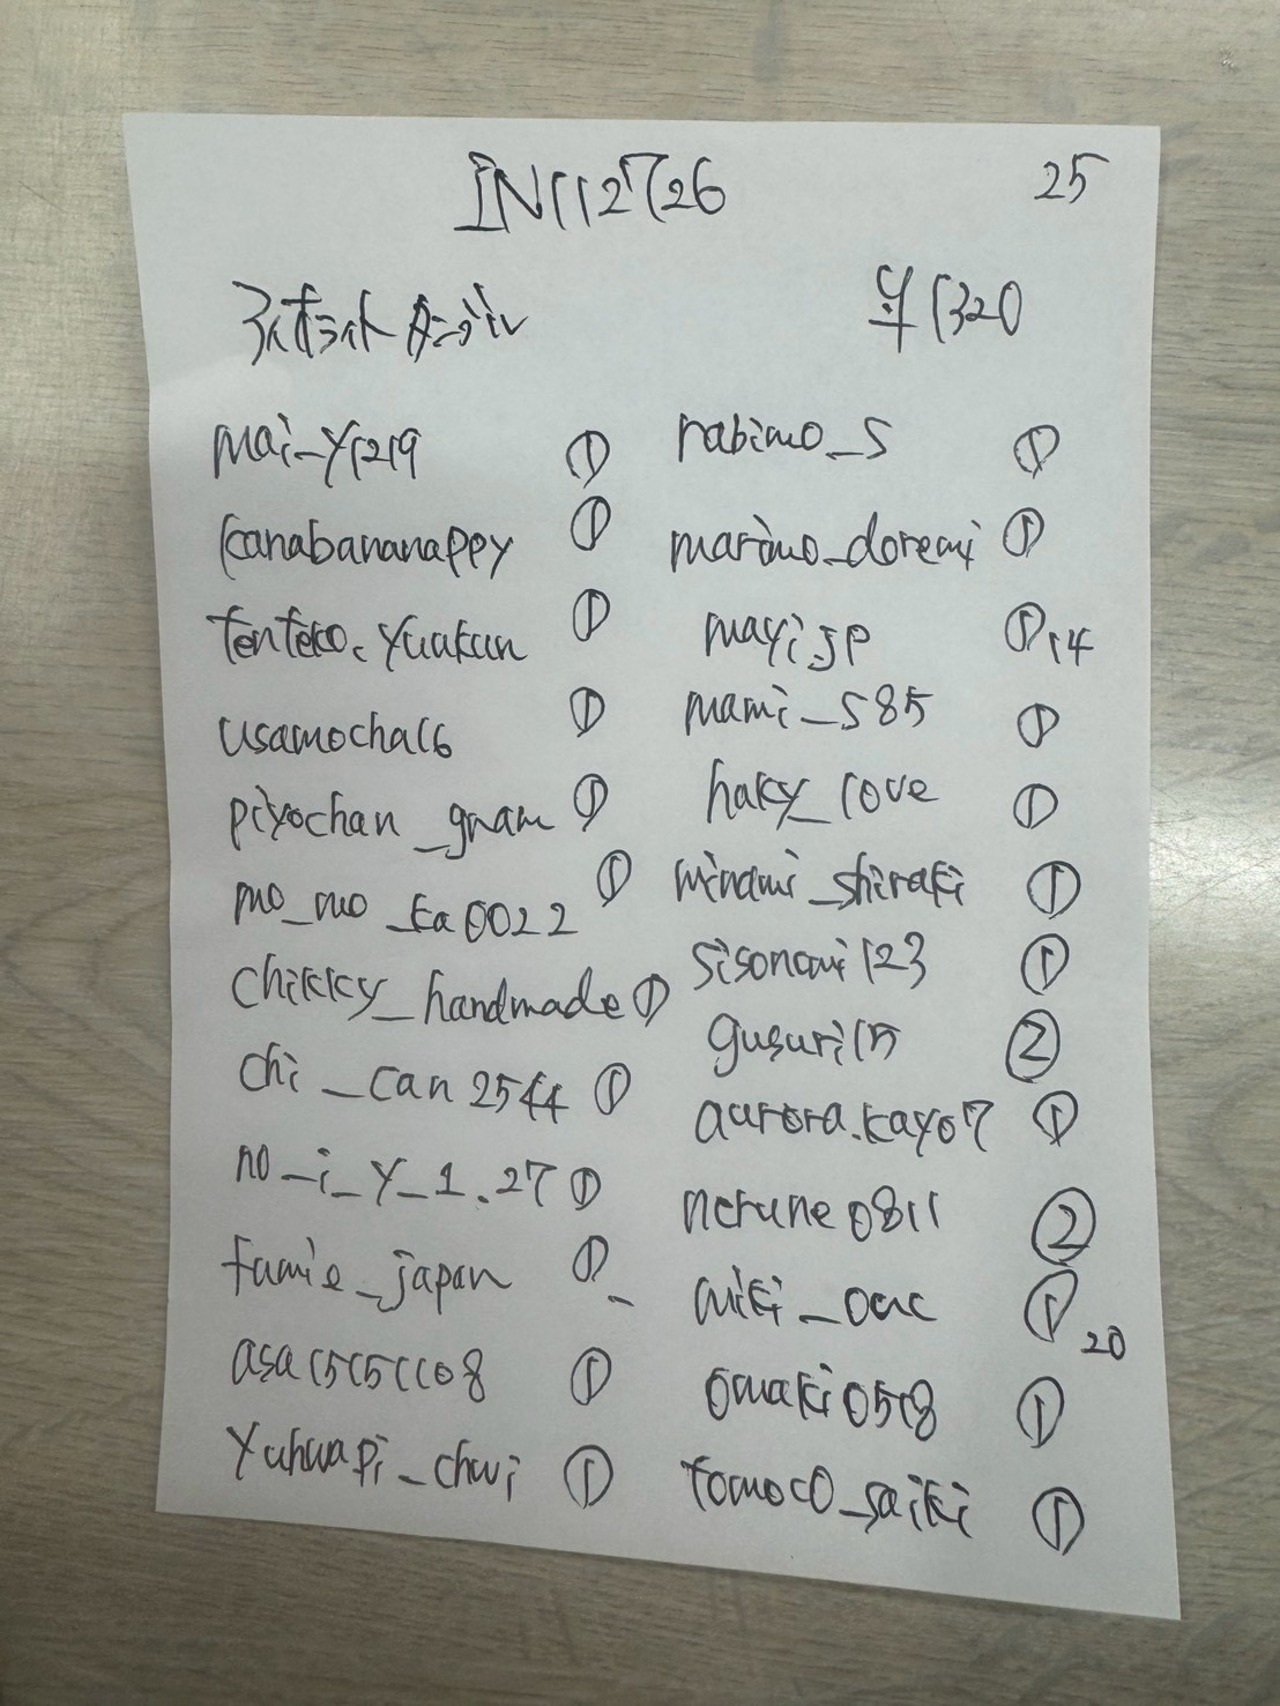 IN112726
25
単1320
mai_y1219 ①
kanabananappy ①
tenteko.yuukun ①
usamocha16 ①
piyochan_gnam ①
mo_mo_ka0022 ①
chikky_handmade ①
chi_can2544 ①
no_i_y_1.27 ①
fumie_japan ①
asa15151108 ①
yuhwapi_chwi ①
rabimo_s ①
marimo_doremi ①
mayi.jp ① 14
mami_s85 ①
haky_love ①
minami_shiraki ①
sisonomi123 ①
gusuri15 ②
aurora.kayo7 ①
nerune0811 ②
miki_ouc ① 20
omaki0518 ①
tomoco_saiki ①